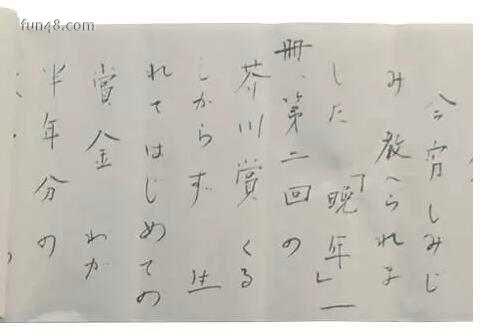 fun48.com
今宵しみじ
み教へられま
した「晩年」一
冊、第二回の
芥川賞くる
しからず 生
れてはじめての
賞金 わが
半年分の